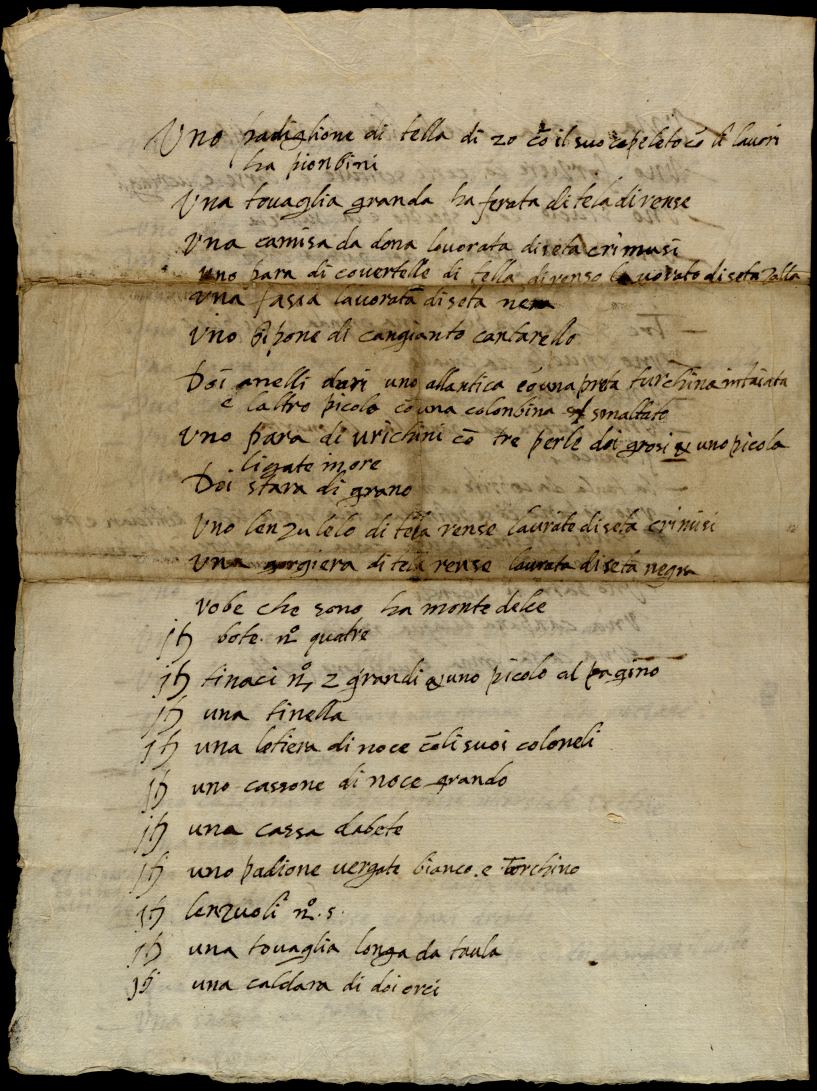 Uno padiglione di tella di 20 cō il suo capeleto cō li lauori
ha pionbini
Una touaglia granda ha ferata di tela di rense
Una camisa da dona lauorata di seta crimusi
uno para di couertelle di tella di renso lauorato di seta zalla
una fassa lauorata di seta nera
Uno gipone di cangianto cantarello
Doi anelli dori uno allantica cō una preta turchina intaiata
e laltro picolo cō una colonbina smaltato
Uno para di urichini cō tre perle doi grosi & uno picola
ligate in ore
Doi stara di grano
Uno lenzulelo di tela rense laurato di seta crimisi
Una gorgiera di tela rense laurata di seta negra
robe che sono ha monte delce
jtȝ bote nº quatre
jtȝ tinaci nº 2 grandi & uno picolo al pagino
jtȝ una tinella
jtȝ una letiera di noce cō li suoi coloneli
jtȝ uno cassone di noce grando
jtȝ una cassa dabete
jtȝ uno padione uergate bianco e torchino
jtȝ lenzuoli nº 5
jtȝ una touaglia longa da taula
jtȝ una caldara di doi orci